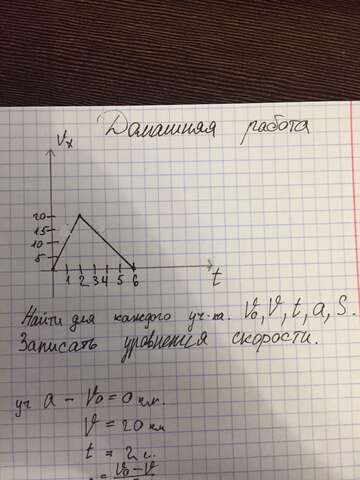 Домашняя работа
Vx
20
15
10
5
1 2 3 4 5 6 t
Найти для каждого уч-ка. V₀, V, t, a, S.
Записать уровнения скорости.
уч a - V₀ = 0 км.
V = 20 км
t = 2 с.
V₀ - V